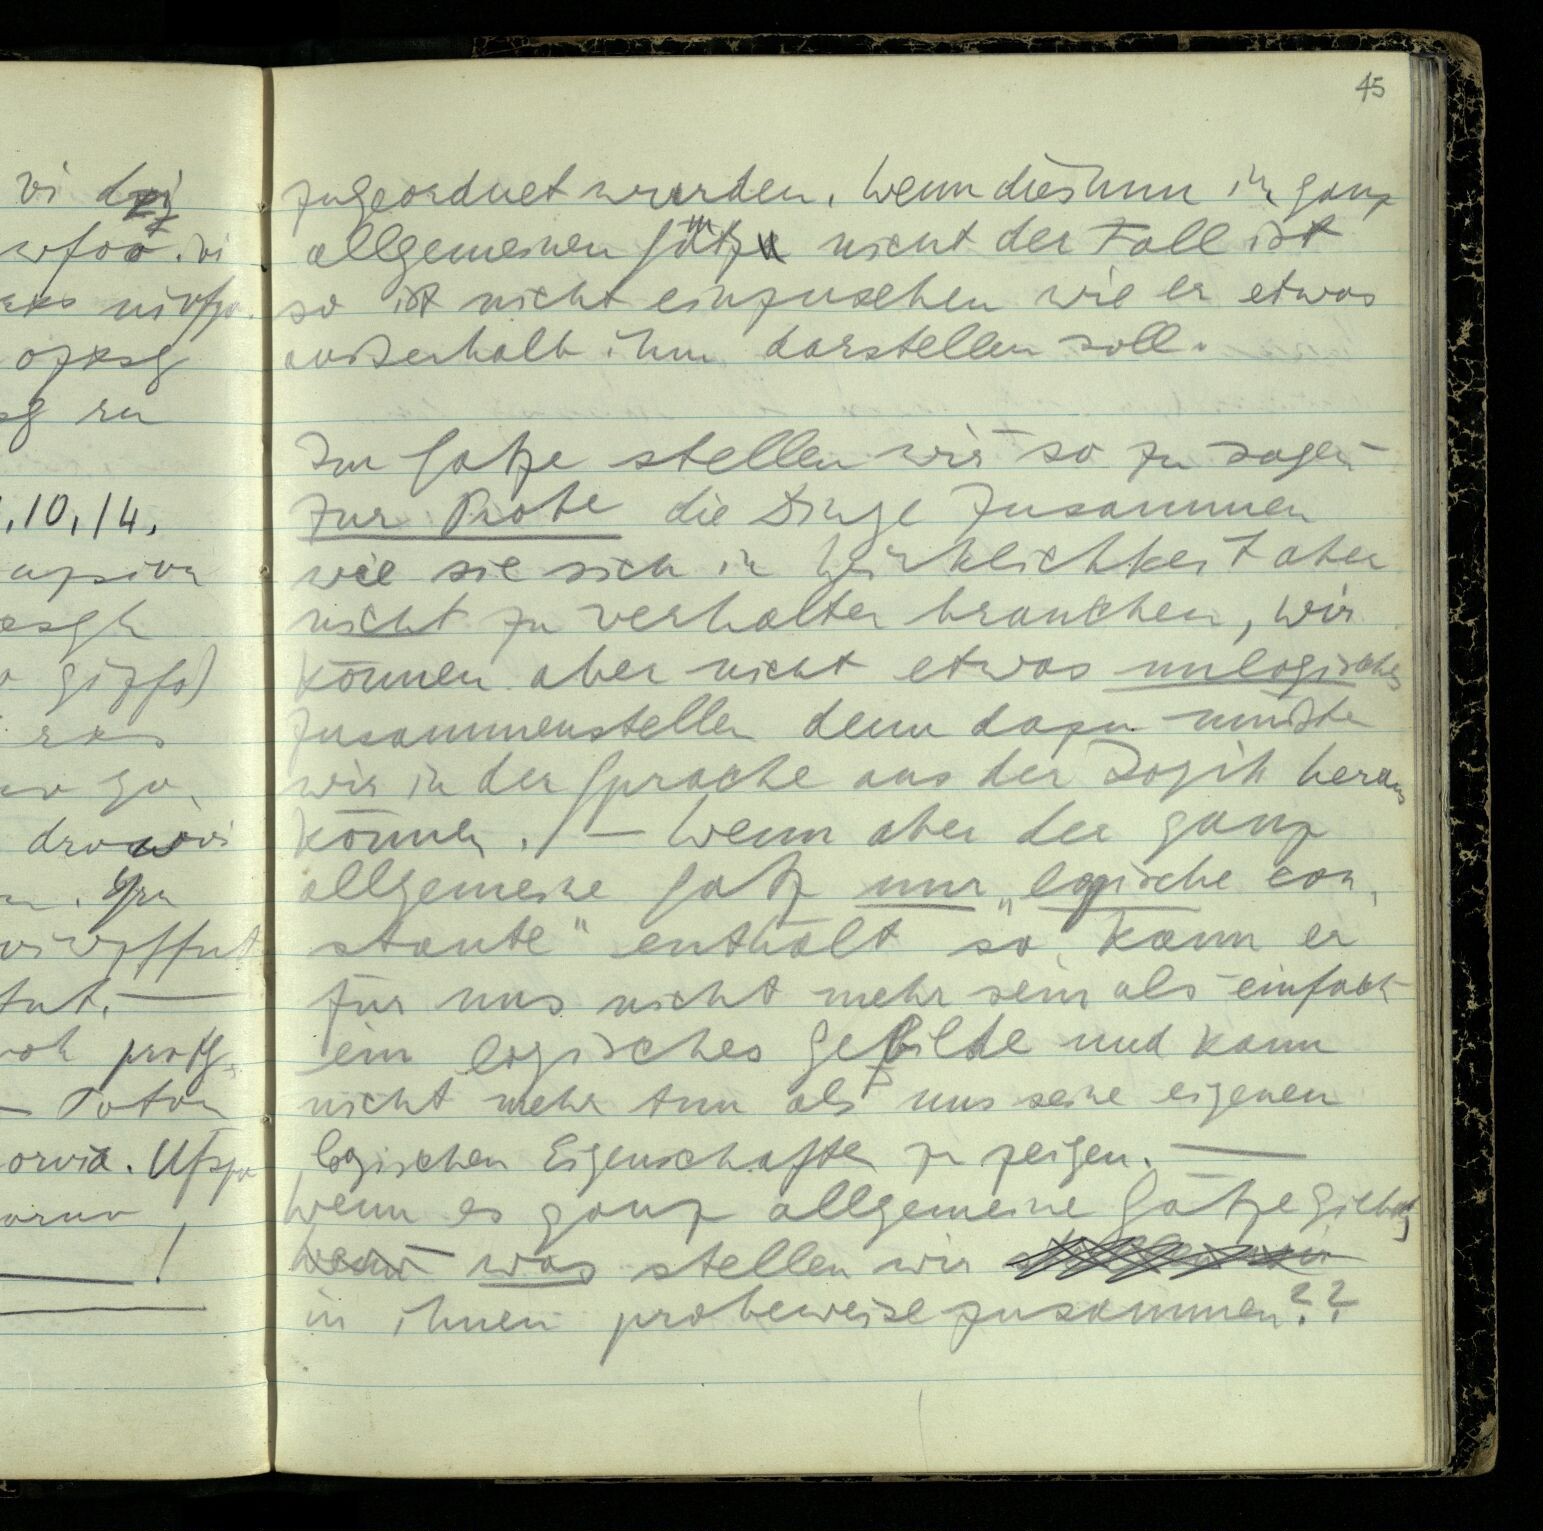 45
vi
wfoo. vi
opxsg
sg rn
.10.14.
esgh
girfs)
tut. —
orvia. Ufsgo
zugeordnet wurden. Wenn dies nun in ganz
allgemeinen Satz nicht der Fall ist
so ist nicht einzusehen wie er etwas
außerhalb ihm darstellen soll.
Im Satze stellen wir – so zu sagen –
zur Probe die Dinge zusammen
wie sie sich in Wirklichkeit aber
nicht zu verhalten brauchen, wir
können aber nicht etwas unlogisches
zusammenstellen denn dazu müßten
wir in der Sprache aus der Logik heraus
können. / — Wenn aber der ganz
allgemeine Satz nur „logische Con-
stante" enthält so kann er
für uns nicht mehr sein als – einfach –
ein logisches Gebilde und kann
nicht mehr tun als uns seine eigenen
logischen Eigenschaften zu zeigen. —
Wenn es ganz allgemeine Sätze giebt,
was stellen wir
in ihnen probeweise zusammen??